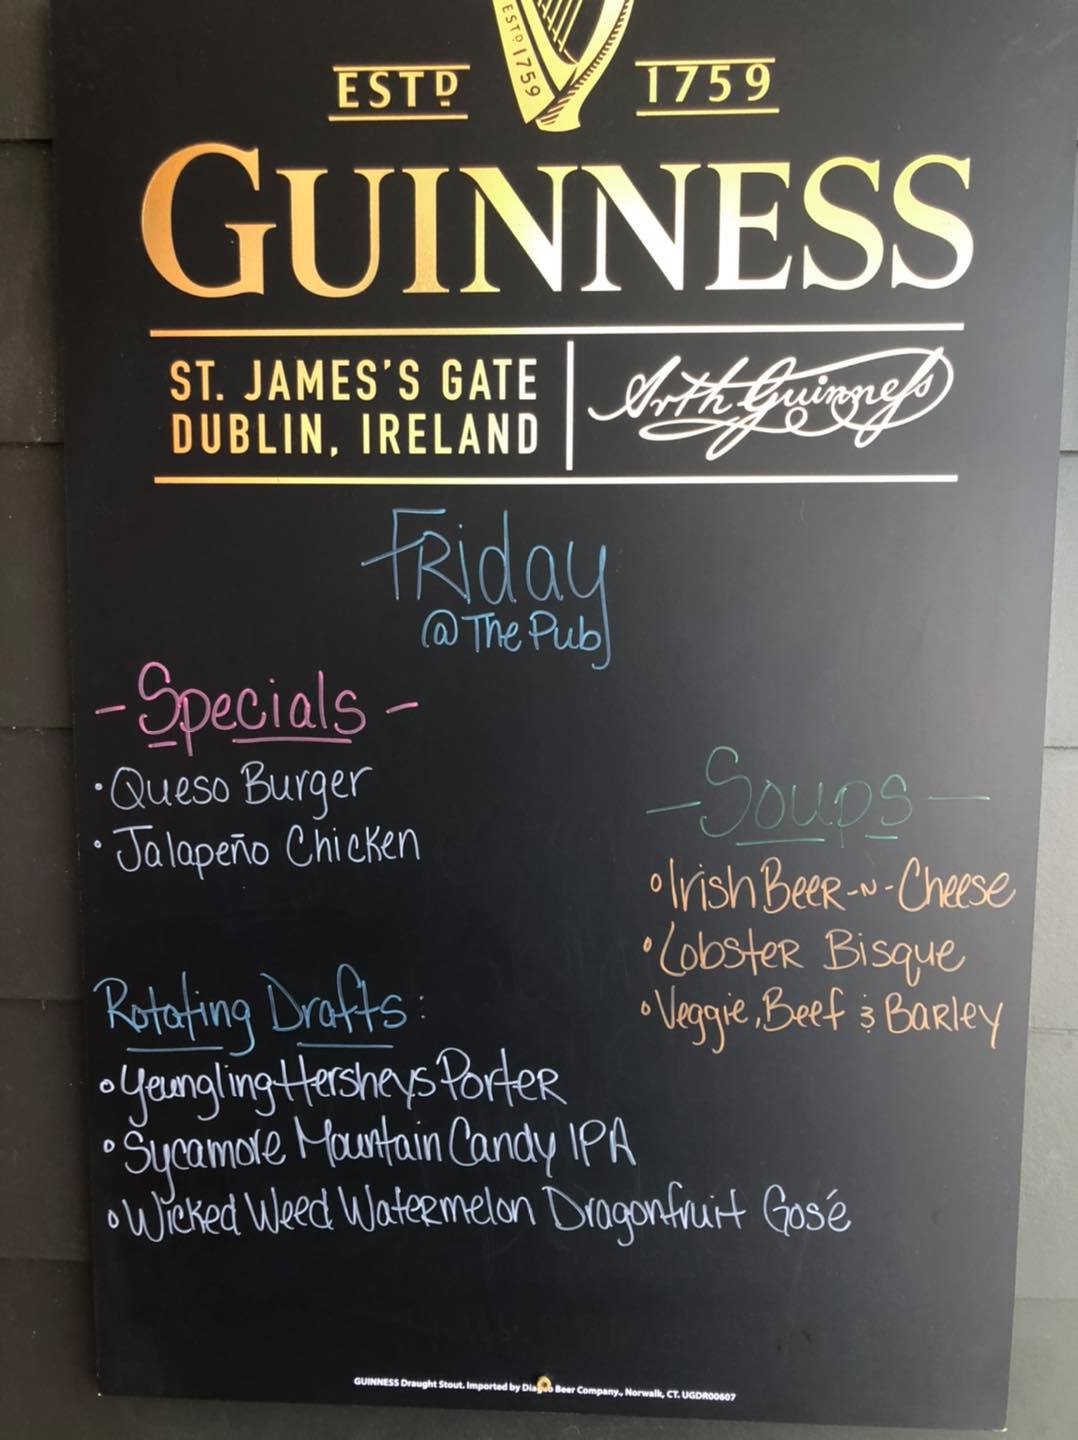 ESTD 1759
ESTD 1759
GUINNESS
ST. JAMES'S GATE
DUBLIN, IRELAND
Arth Guinness
FRiday
@ The Pub
- Specials -
• Queso Burger
• Jalapeño Chicken
- Soups -
• Irish Beer -N- Cheese
• Lobster Bisque
• Veggie, Beef & Barley
Rotating Drafts:
• Yeungling Hersheys Porter
• Sycamore Mountain Candy IPA
• Wicked Weed Watermelon Dragonfruit Gosé
GUINNESS Draught Stout. Imported by Diageo Beer Company., Norwalk, CT. UGDR00607